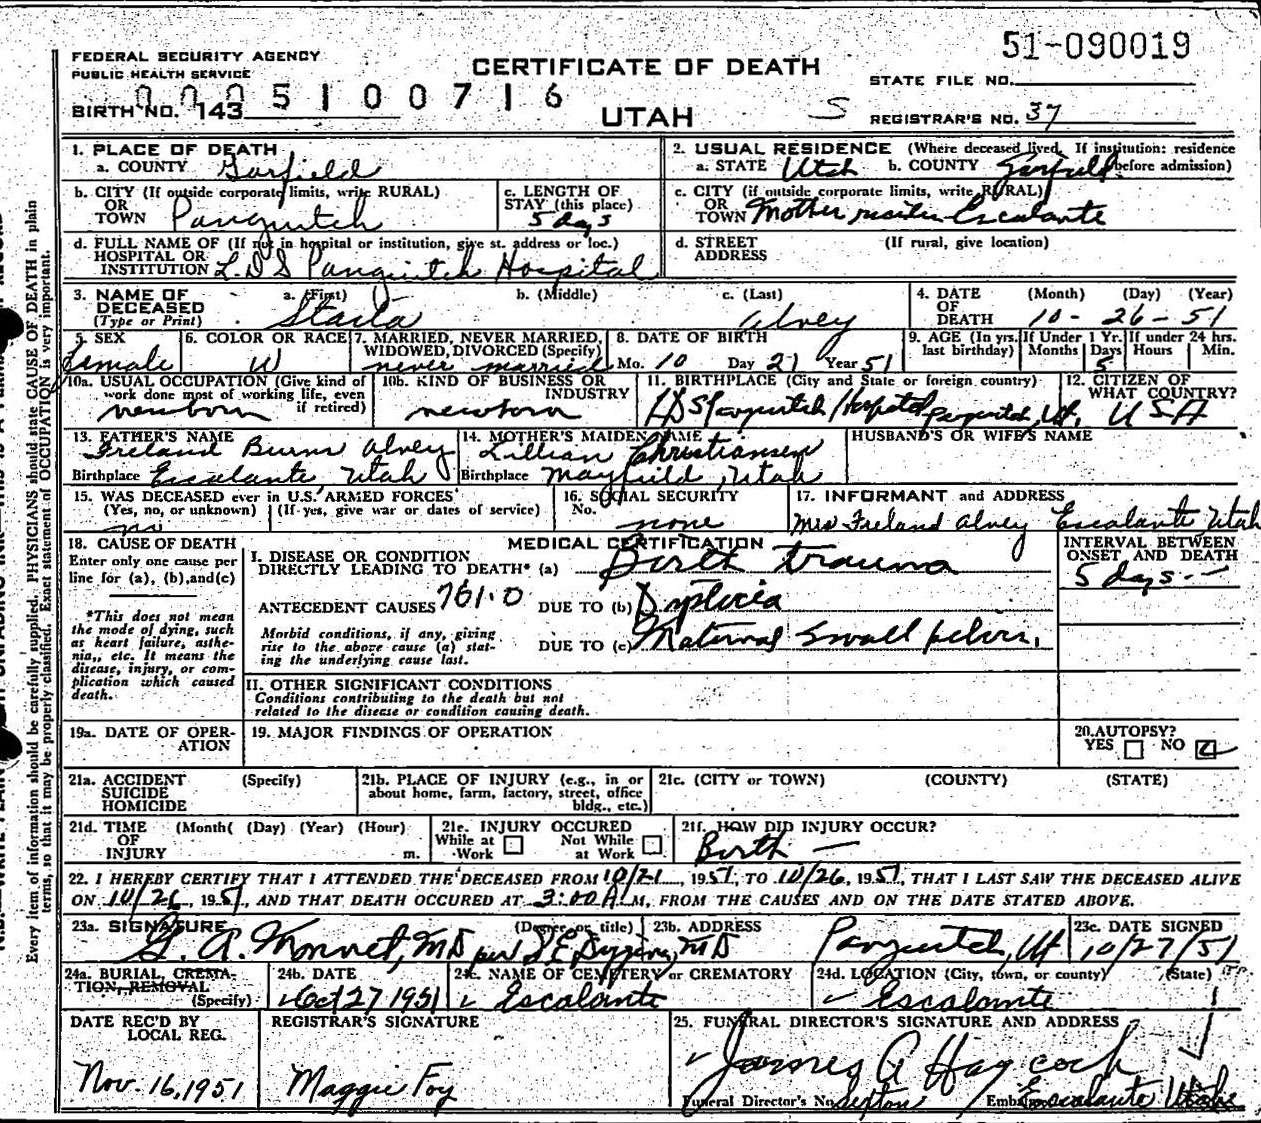 51-090019
FEDERAL SECURITY AGENCY
PUBLIC HEALTH SERVICE
CERTIFICATE OF DEATH
STATE FILE NO.
0005100716
BIRTH NO. 143
UTAH
S
REGISTRAR'S NO. 37
1. PLACE OF DEATH
a. COUNTY Garfield
2. USUAL RESIDENCE (Where deceased lived. If institution: residence before admission)
a. STATE Utah b. COUNTY Garfield
b. CITY (If outside corporate limits, write RURAL)
OR
TOWN Panguitch
c. LENGTH OF
STAY (this place)
5 days
c. CITY (if outside corporate limits, write RURAL)
OR
TOWN Mother Escalante
d. FULL NAME OF (If not in hospital or institution, give st. address or loc.)
HOSPITAL OR
INSTITUTION L.D.S Panguitch Hospital
d. STREET (If rural, give location)
ADDRESS
3. NAME OF DECEASED
(Type or Print)
a. (First) b. (Middle) c. (Last)
Alvey
4. DATE OF DEATH (Month) (Day) (Year)
10-26-51
5. SEX
Female
6. COLOR OR RACE
W
7. MARRIED, NEVER MARRIED,
WIDOWED, DIVORCED (Specify)
never married
8. DATE OF BIRTH
Mo. 10 Day 21 Year 51
9. AGE (In yrs. last birthday) If Under 1 Yr. Months Days If under 24 hrs. Hours Min.
5
10a. USUAL OCCUPATION (Give kind of
work done most of working life, even
if retired)
newborn
10b. KIND OF BUSINESS OR
INDUSTRY
newborn
11. BIRTHPLACE (City and State or foreign country)
LDS Panguitch Hospital Panguitch, Ut.
12. CITIZEN OF
WHAT COUNTRY?
USA
13. FATHER'S NAME
Ireland Burns Alvey
Birthplace Escalante, Utah
14. MOTHER'S MAIDEN NAME
Lillian Christiansen
Birthplace Mayfield, Utah
HUSBAND'S OR WIFE'S NAME
15. WAS DECEASED ever in U.S. ARMED FORCES
(Yes, no, or unknown) (If yes, give war or dates of service)
no
16. SOCIAL SECURITY
No.
none
17. INFORMANT and ADDRESS
Mrs Ireland Alvey Escalante Utah
18. CAUSE OF DEATH
Enter only one cause per
line for (a), (b), and (c)
*This does not mean
the mode of dying, such
as heart failure, asthe-
nia,, etc. It means the
disease, injury, or com-
plication which caused
death.
MEDICAL CERTIFICATION
I. DISEASE OR CONDITION
DIRECTLY LEADING TO DEATH* (a) Birth trauma
ANTECEDENT CAUSES 761.0 DUE TO (b)
Morbid conditions, if any, giving
rise to the above cause (a) stat-
ing the underlying cause last.
DUE TO (c) Maternal small pelvis.
INTERVAL BETWEEN
ONSET AND DEATH
5 days.—
II. OTHER SIGNIFICANT CONDITIONS
Conditions contributing to the death but not
related to the disease or condition causing death.
19a. DATE OF OPER-
ATION
19. MAJOR FINDINGS OF OPERATION
20. AUTOPSY?
YES NO
21a. ACCIDENT (Specify)
SUICIDE
HOMICIDE
21b. PLACE OF INJURY (e.g., in or
about home, farm, factory, street, office
bldg., etc.)
21c. (CITY or TOWN) (COUNTY) (STATE)
21d. TIME (Month( (Day) (Year) (Hour)
OF
INJURY m.
21e. INJURY OCCURED
While at Work Not While at Work
21f. HOW DID INJURY OCCUR?
Birth —
22. I HEREBY CERTIFY THAT I ATTENDED THE DECEASED FROM 10/21, 1951, TO 10/26, 1951, THAT I LAST SAW THE DECEASED ALIVE
ON 10/26, 1951, AND THAT DEATH OCCURED AT 3:00 A.M, FROM THE CAUSES AND ON THE DATE STATED ABOVE.
23a. SIGNATURE (Degree or title)
MD per MD
23b. ADDRESS
Panguitch, Ut
23c. DATE SIGNED
10/27/51
24a. BURIAL, CREMA-
TION, REMOVAL
(Specify)
24b. DATE
Oct 27 1951
24c. NAME OF CEMETERY or CREMATORY
Escalante
24d. LOCATION (City, town, or county) (State)
Escalante
DATE REC'D BY
LOCAL REG.
Nov. 16, 1951
REGISTRAR'S SIGNATURE
Maggie Foy
25. FUNERAL DIRECTOR'S SIGNATURE AND ADDRESS
James A Haycock
Funeral Director's No. Sexton
Escalante Utah
Every item of information should be carefully supplied. PHYSICIANS should state CAUSE OF DEATH in plain
terms, so that it may be properly classified. Exact statement of OCCUPATION is very important.